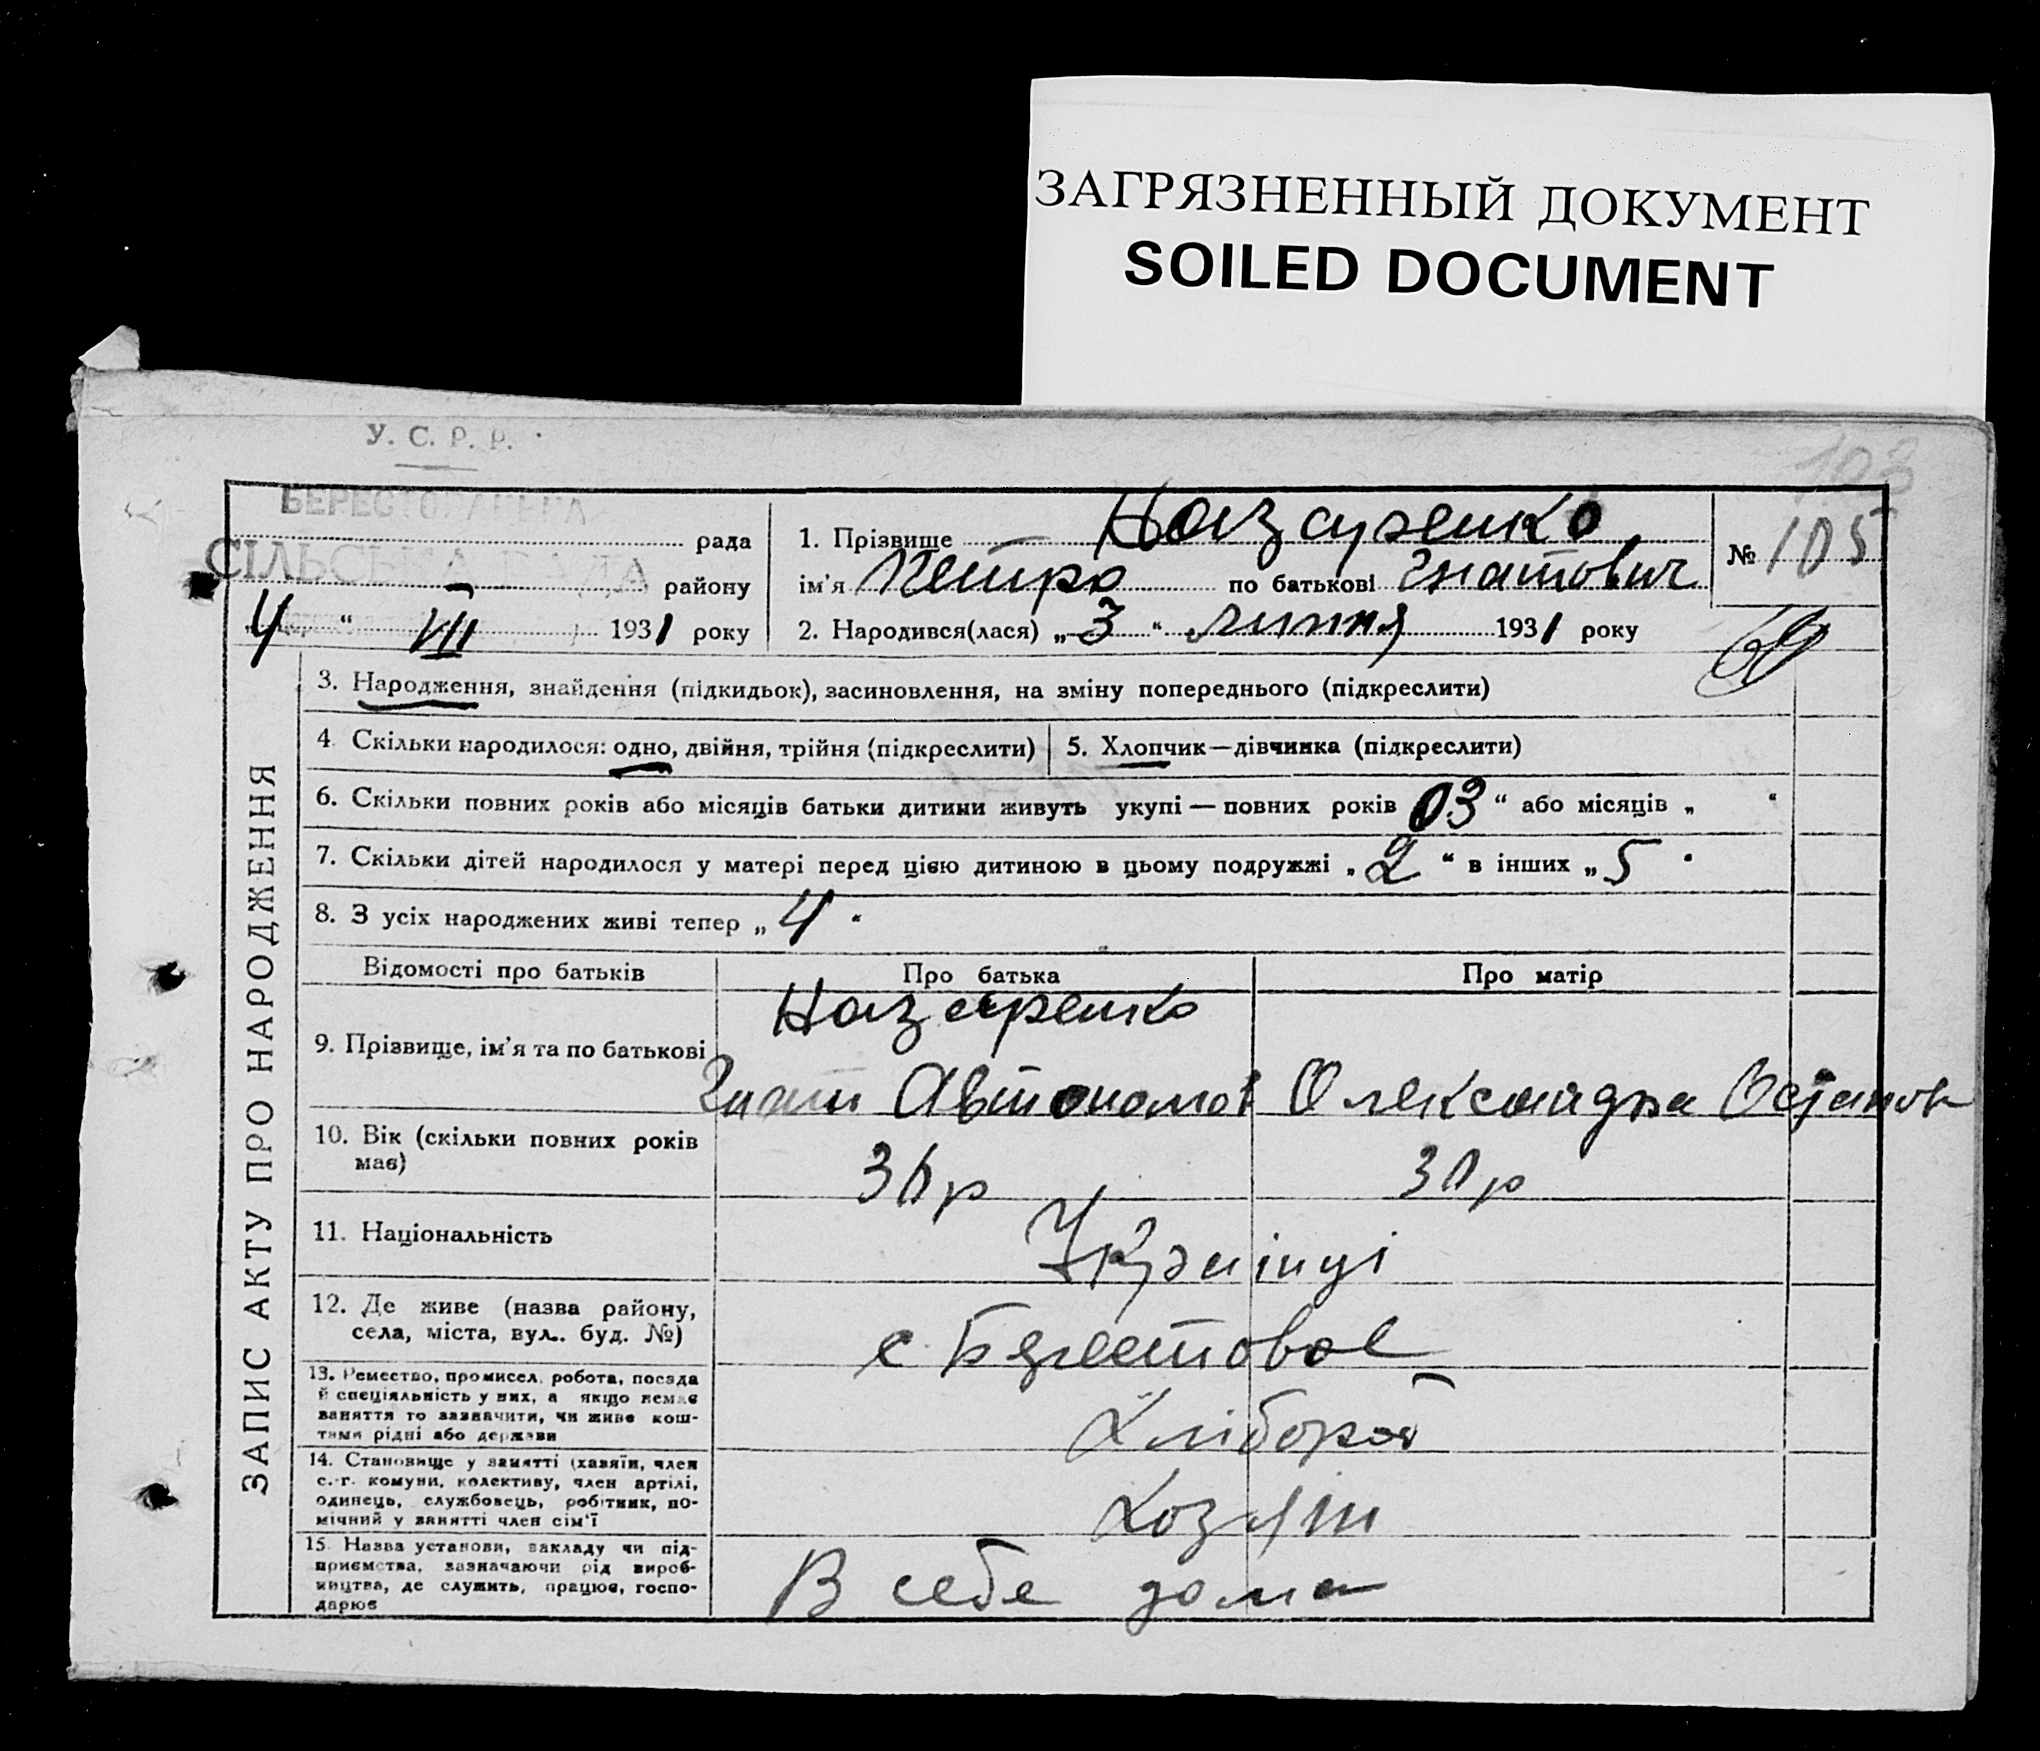 ЗАГРЯЗНЕННЫЙ ДОКУМЕНТ
SOILED DOCUMENT
У. С. Р. Р.
103
СІЛЬСЬКА РАДА
рада
району
4 " VII 1931 року
1. Прізвище Назаренко
ім'я Петро по батькові Гнатович
2. Народився(лася) „3" липня 1931 року
№ 105
ЗАПИС АКТУ ПРО НАРОДЖЕННЯ
3. Народження, знайдення (підкидьок), засиновлення, на зміну попереднього (підкреслити)
4. Скільки народилося: одно, двійня, трійня (підкреслити)
5. Хлопчик—дівчинка (підкреслити)
6. Скільки повних років або місяців батьки дитини живуть укупі — повних років 03 " або місяців „ "
7. Скільки дітей народилося у матері перед цією дитиною в цьому подружжі „2" в інших „5"
8. З усіх народжених живі тепер „4"
Відомості про батьків
Про батька
Про матір
9. Прізвище, ім'я та по батькові
Назаренко
Гнат Автономов
Олександра Остапов
10. Вік (скільки повних років
має)
30р
11. Національність
Українці
12. Де живе (назва району,
села, міста, вул.. буд. №)
с. Берестовое
13. Ремество, промисел, робота, посада
й спеціяльність у них, а якщо немає
заняття то зазначити, чи живе кош-
тами рідні або держави
Хлібороб
14. Становище у занятті (хазяїн, член
с.-г. комуни, колективу, член артілі,
одинець, службовець, робітник, по-
мічний у занятті член сім'ї
Хозяїн
15. Назва установи, закладу чи під-
приємства, зазначаючи рід вироб-
ництва, де служить, працює, госпо-
дарює
В себе дома